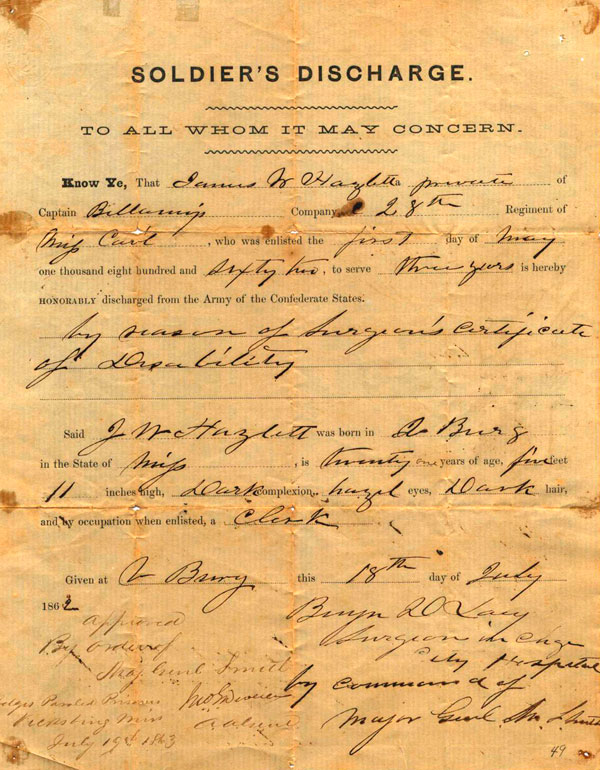 SOLDIER'S DISCHARGE.
TO ALL WHOM IT MAY CONCERN.
Know Ye, That James W Hazlett a private of
Captain Company 28th Regiment of
Miss Cav'l, who was enlisted the first day of May
one thousand eight hundred and sixty two, to serve three years is hereby
HONORABLY discharged from the Army of the Confederate States.
by reason of Surgeon's certificate
of Disability
Said J W Hazlett was born in V Burg
in the State of Miss, is twenty one years of age, five feet
11 inches high, Dark complexion, hazel eyes, Dark hair,
and by occupation when enlisted, a Clerk
Given at V Burg this 18th day of July
1862
Approved
By order of
Maj Genl Smith
Paroled Prisoners
Vicksburg Miss
July 19th 1863
Surgeon in
City Hospital
by command of
Major Genl M L Smith
49